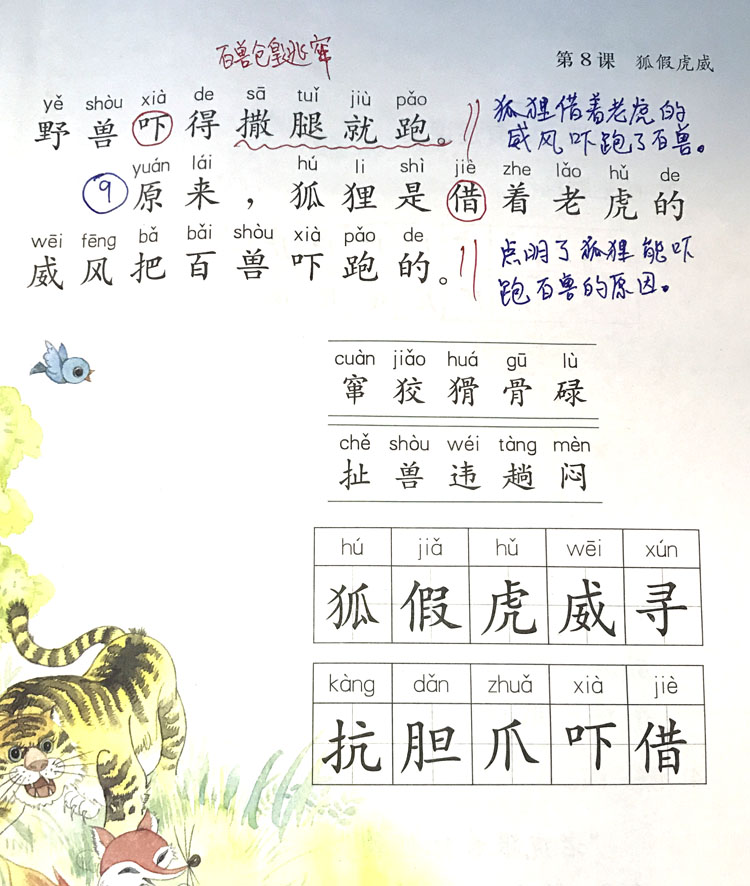 百兽仓皇逃窜
第8课 狐假虎威
yě shòu xià de sā tuǐ jiù pǎo
野兽吓得撒腿就跑。
狐狸借着老虎的
威风吓跑了百兽。
yuán lái hú li shì jiè zhe lǎo hǔ de
⑨原来，狐狸是借着老虎的
wēi fēng bǎ bǎi shòu xià pǎo de
威风把百兽吓跑的。
点明了狐狸能吓
跑百兽的原因。
cuàn jiǎo huá gū lù
窜狡猾骨碌
chě shòu wéi tàng mèn
扯兽违趟闷
hú jiǎ hǔ wēi xún
狐假虎威寻
kàng dǎn zhuǎ xià jiè
抗胆爪吓借